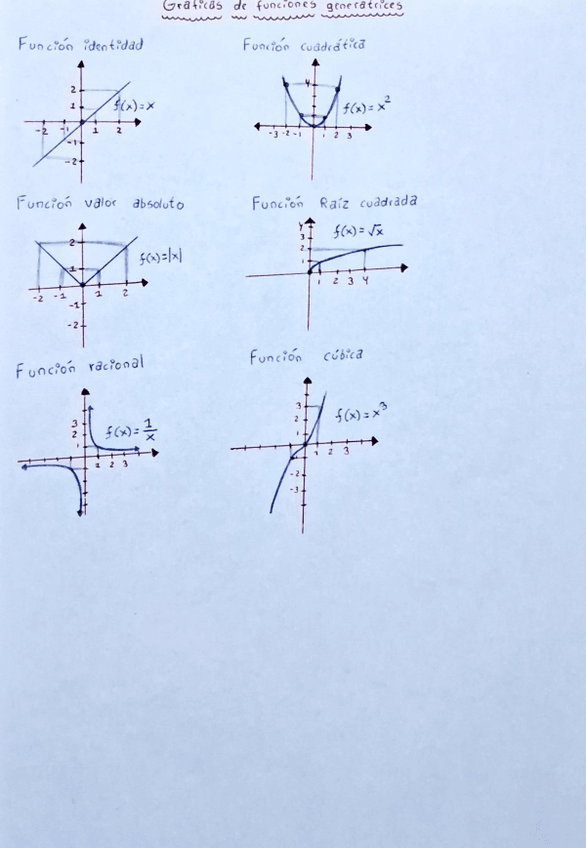 Gráficas de funciones generatrices
Función identidad
2
1
f(x)=x
-2 -1 1 2
-1
-2
Función cuadrática
4
f(x)=x²
-3 -2 -1 1 2 3
Función valor absoluto
2
1
f(x)=|x|
-2 -1 1 2
-1
-2
Función Raíz cuadrada
y
3
2
1
f(x)=√x
1 2 3 4
Función racional
3
2
1
f(x)=1/x
1 2 3
Función cúbica
3
2
f(x)=x³
1 2 3
-1
-2
-3